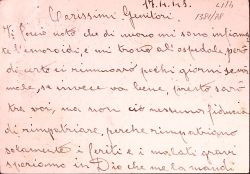 17.4.43.
Carissimi Genitori.
Vi faccio noto che di nuovo mi sono
le emoroidi, e mi trovo all'ospedale però
di certo ci rimmarò pochi giorni se
male, se invece va bene, presto sarò
tra voi, ma non ciò nessuno fiducia
di rimpatriare, perche rimpatriano
solamente i feriti e i malati gravi
speriamo in Dio che me la mandi